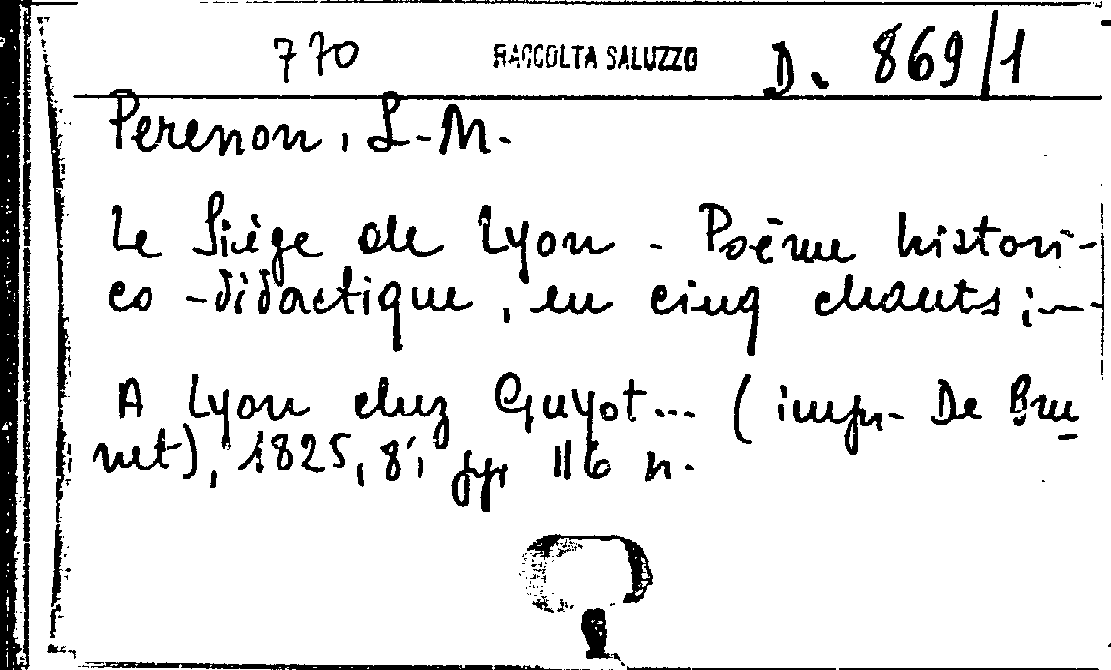 770 RACCOLTA SALUZZO D. 869/1
Perenon, L-M.
Le Siège de Lyon - Poëme histori-
co-didactique, en cinq chants ;--
A Lyon chez Guyot... (impr. De Bru
net), 1825, 8°, pp. 116 n.